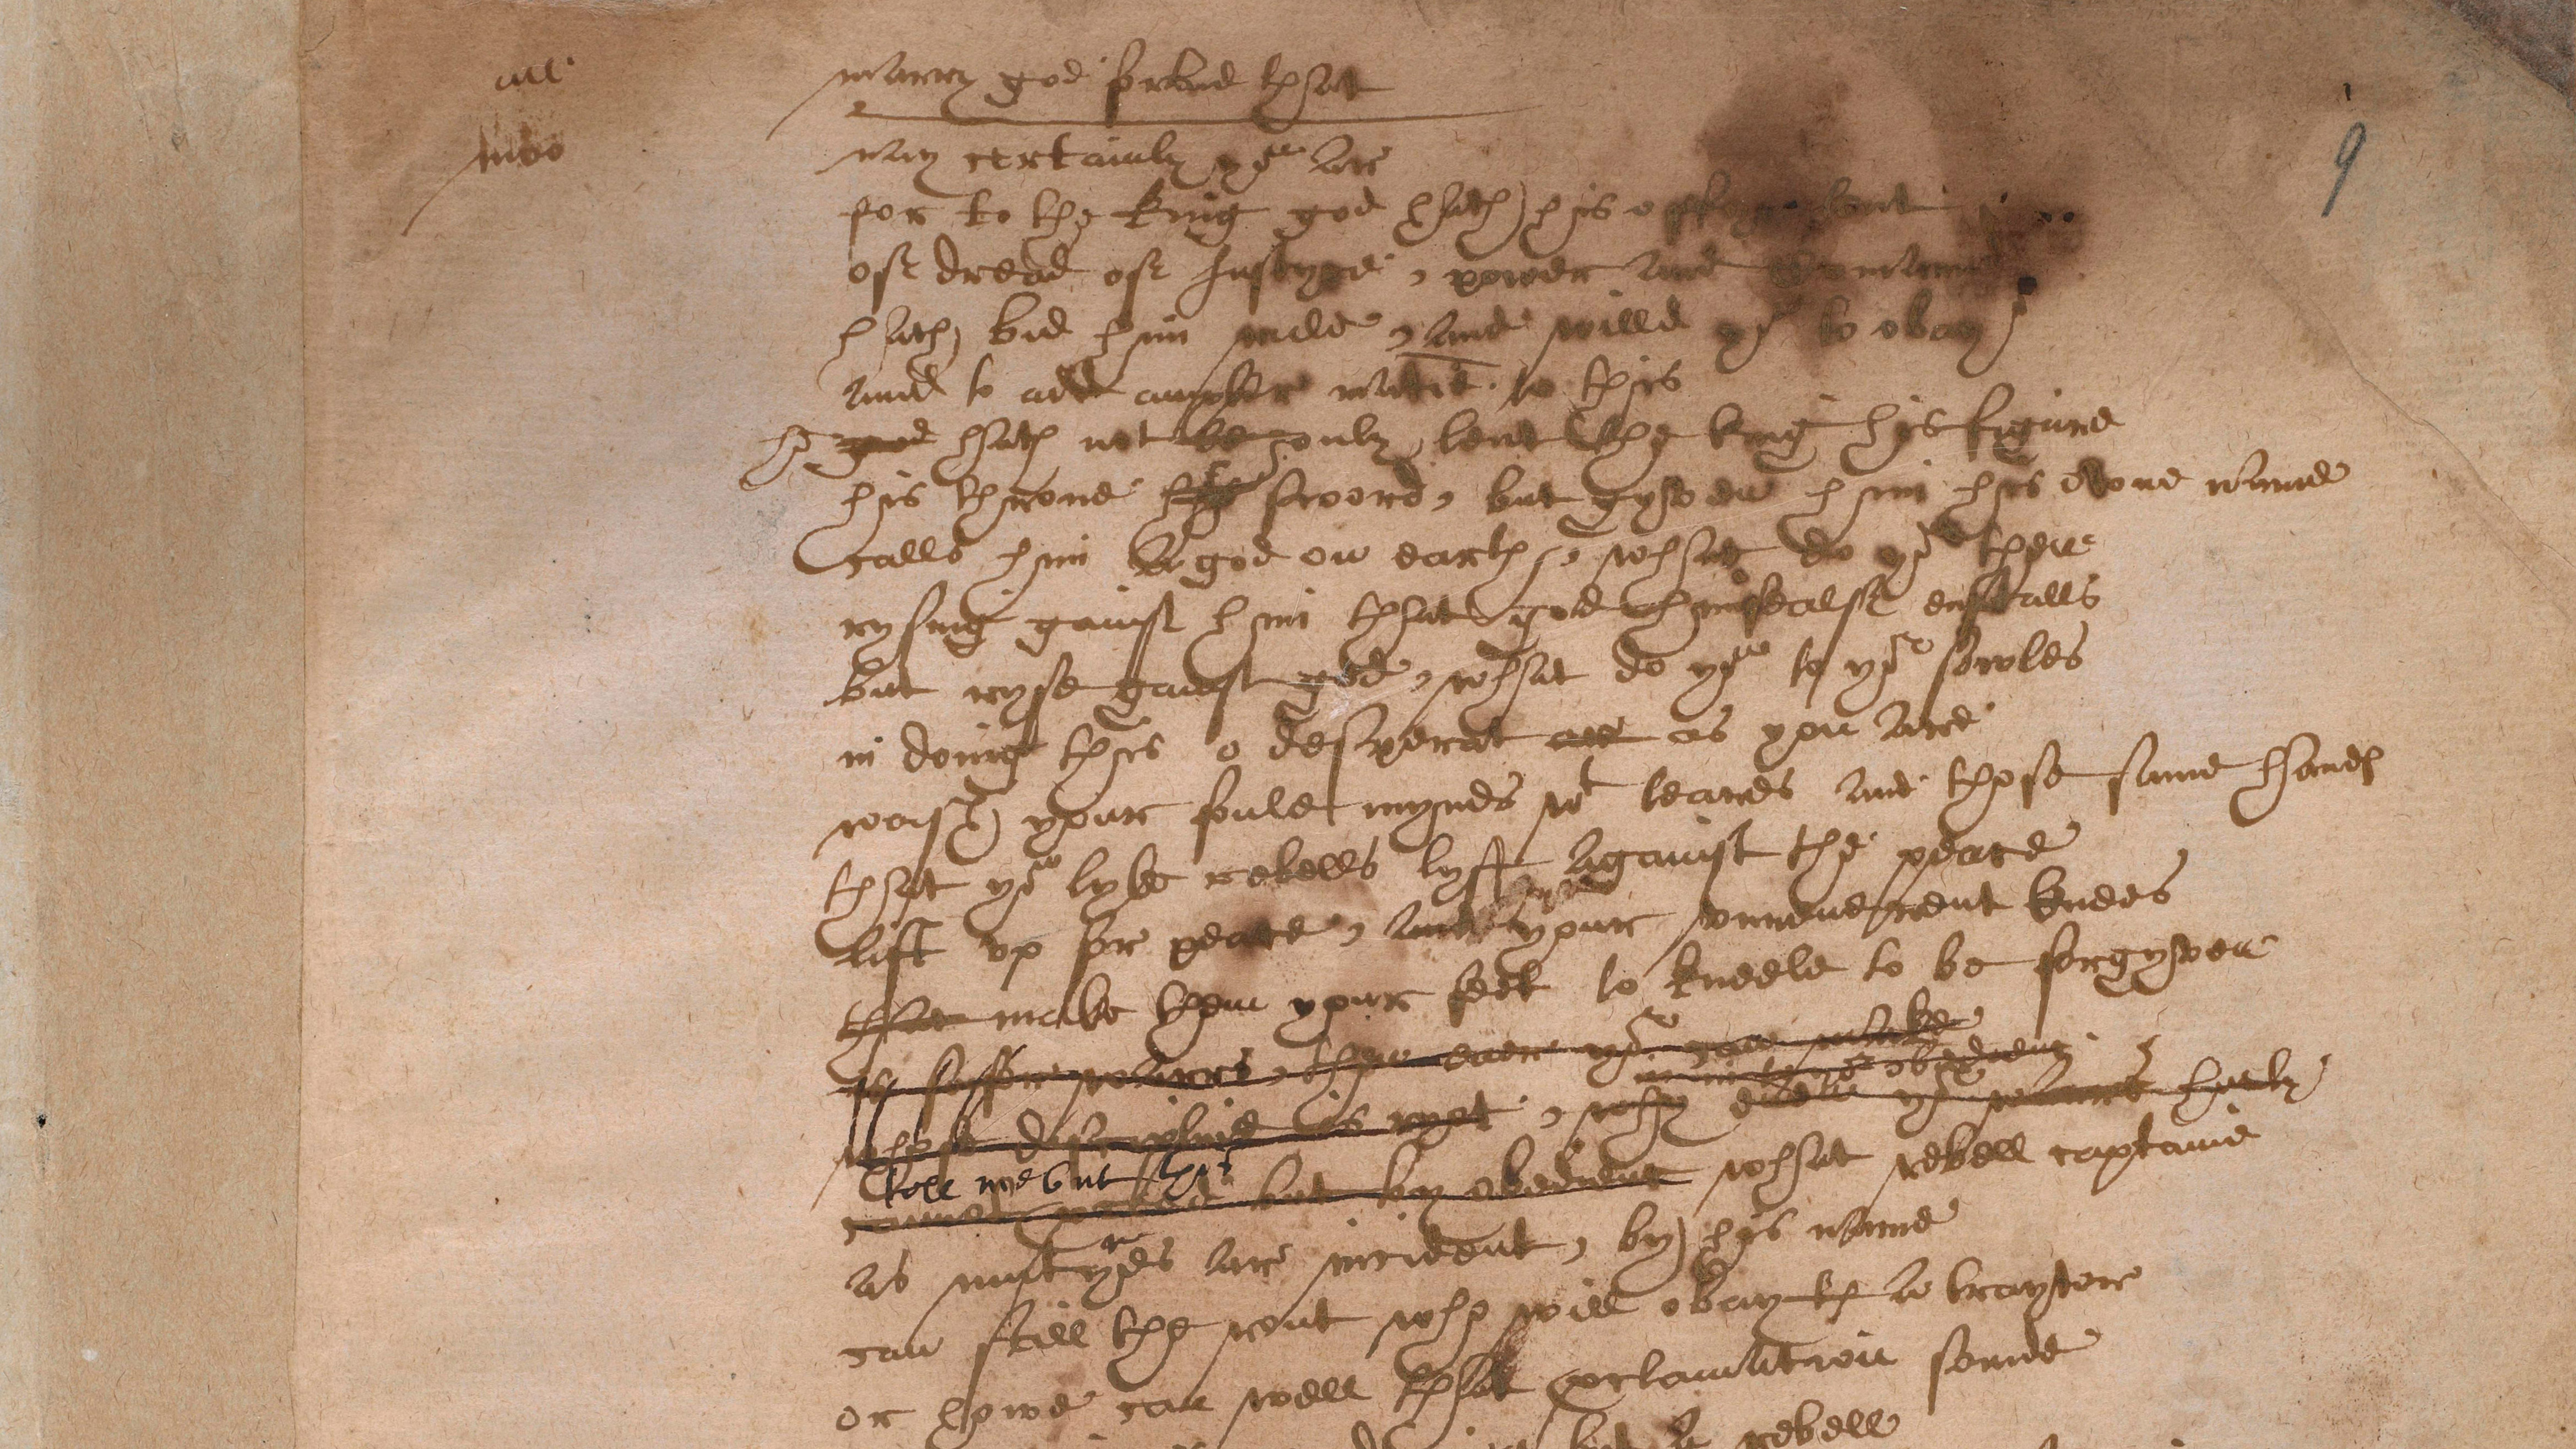 all marry god forbid that
moo nay certainly you ar
for to the king god hath his offyc lent
of dread of Iustyce, power and Comaund
hath bid him rule, and willd you to obay
and to add ampler matie. to this
he god hath not le only lent the king his figure
his throne hys sword, but gyven him his owne name
calls him a god on earth, what do you then
rysing gainst him that god himsealf enstalls
but ryse gainst god, what do you to yor sowles
in doing this o desperat ar as you are.
wash your foule mynds wt teares and those same handes
that you lyke rebells lyft against the peace
lift vp for peace, and your vnreuerent knees
that make them your feet to kneele to be forgyven
is safer warrs, then euer you can make
whose discipline is ryot, why euen yor warrs hurly
in in to yor obedienc.
tell me but this
cannot proceed but by obedienc what rebell captaine
as mutynes ar incident, by his name
can still the rout who will obay th a traytor
or howe can well that proclamation sounde
but a rebell
9